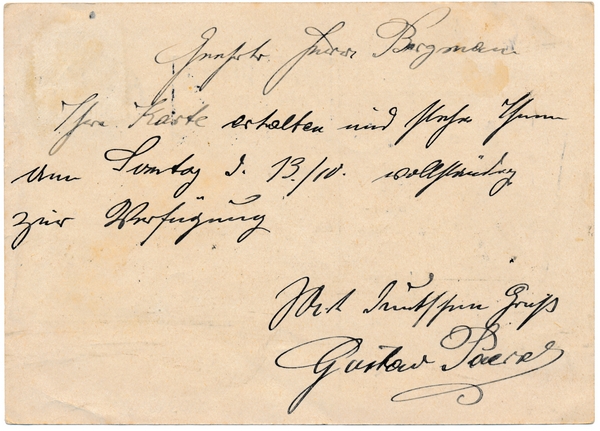 Geehrter Herr Bergman
Ihre Karte erhalten und stehe Ihnen
am Sontag d. 13/10. vollständig
zur Verfügung
Mit deutschem Gruß
Gustav